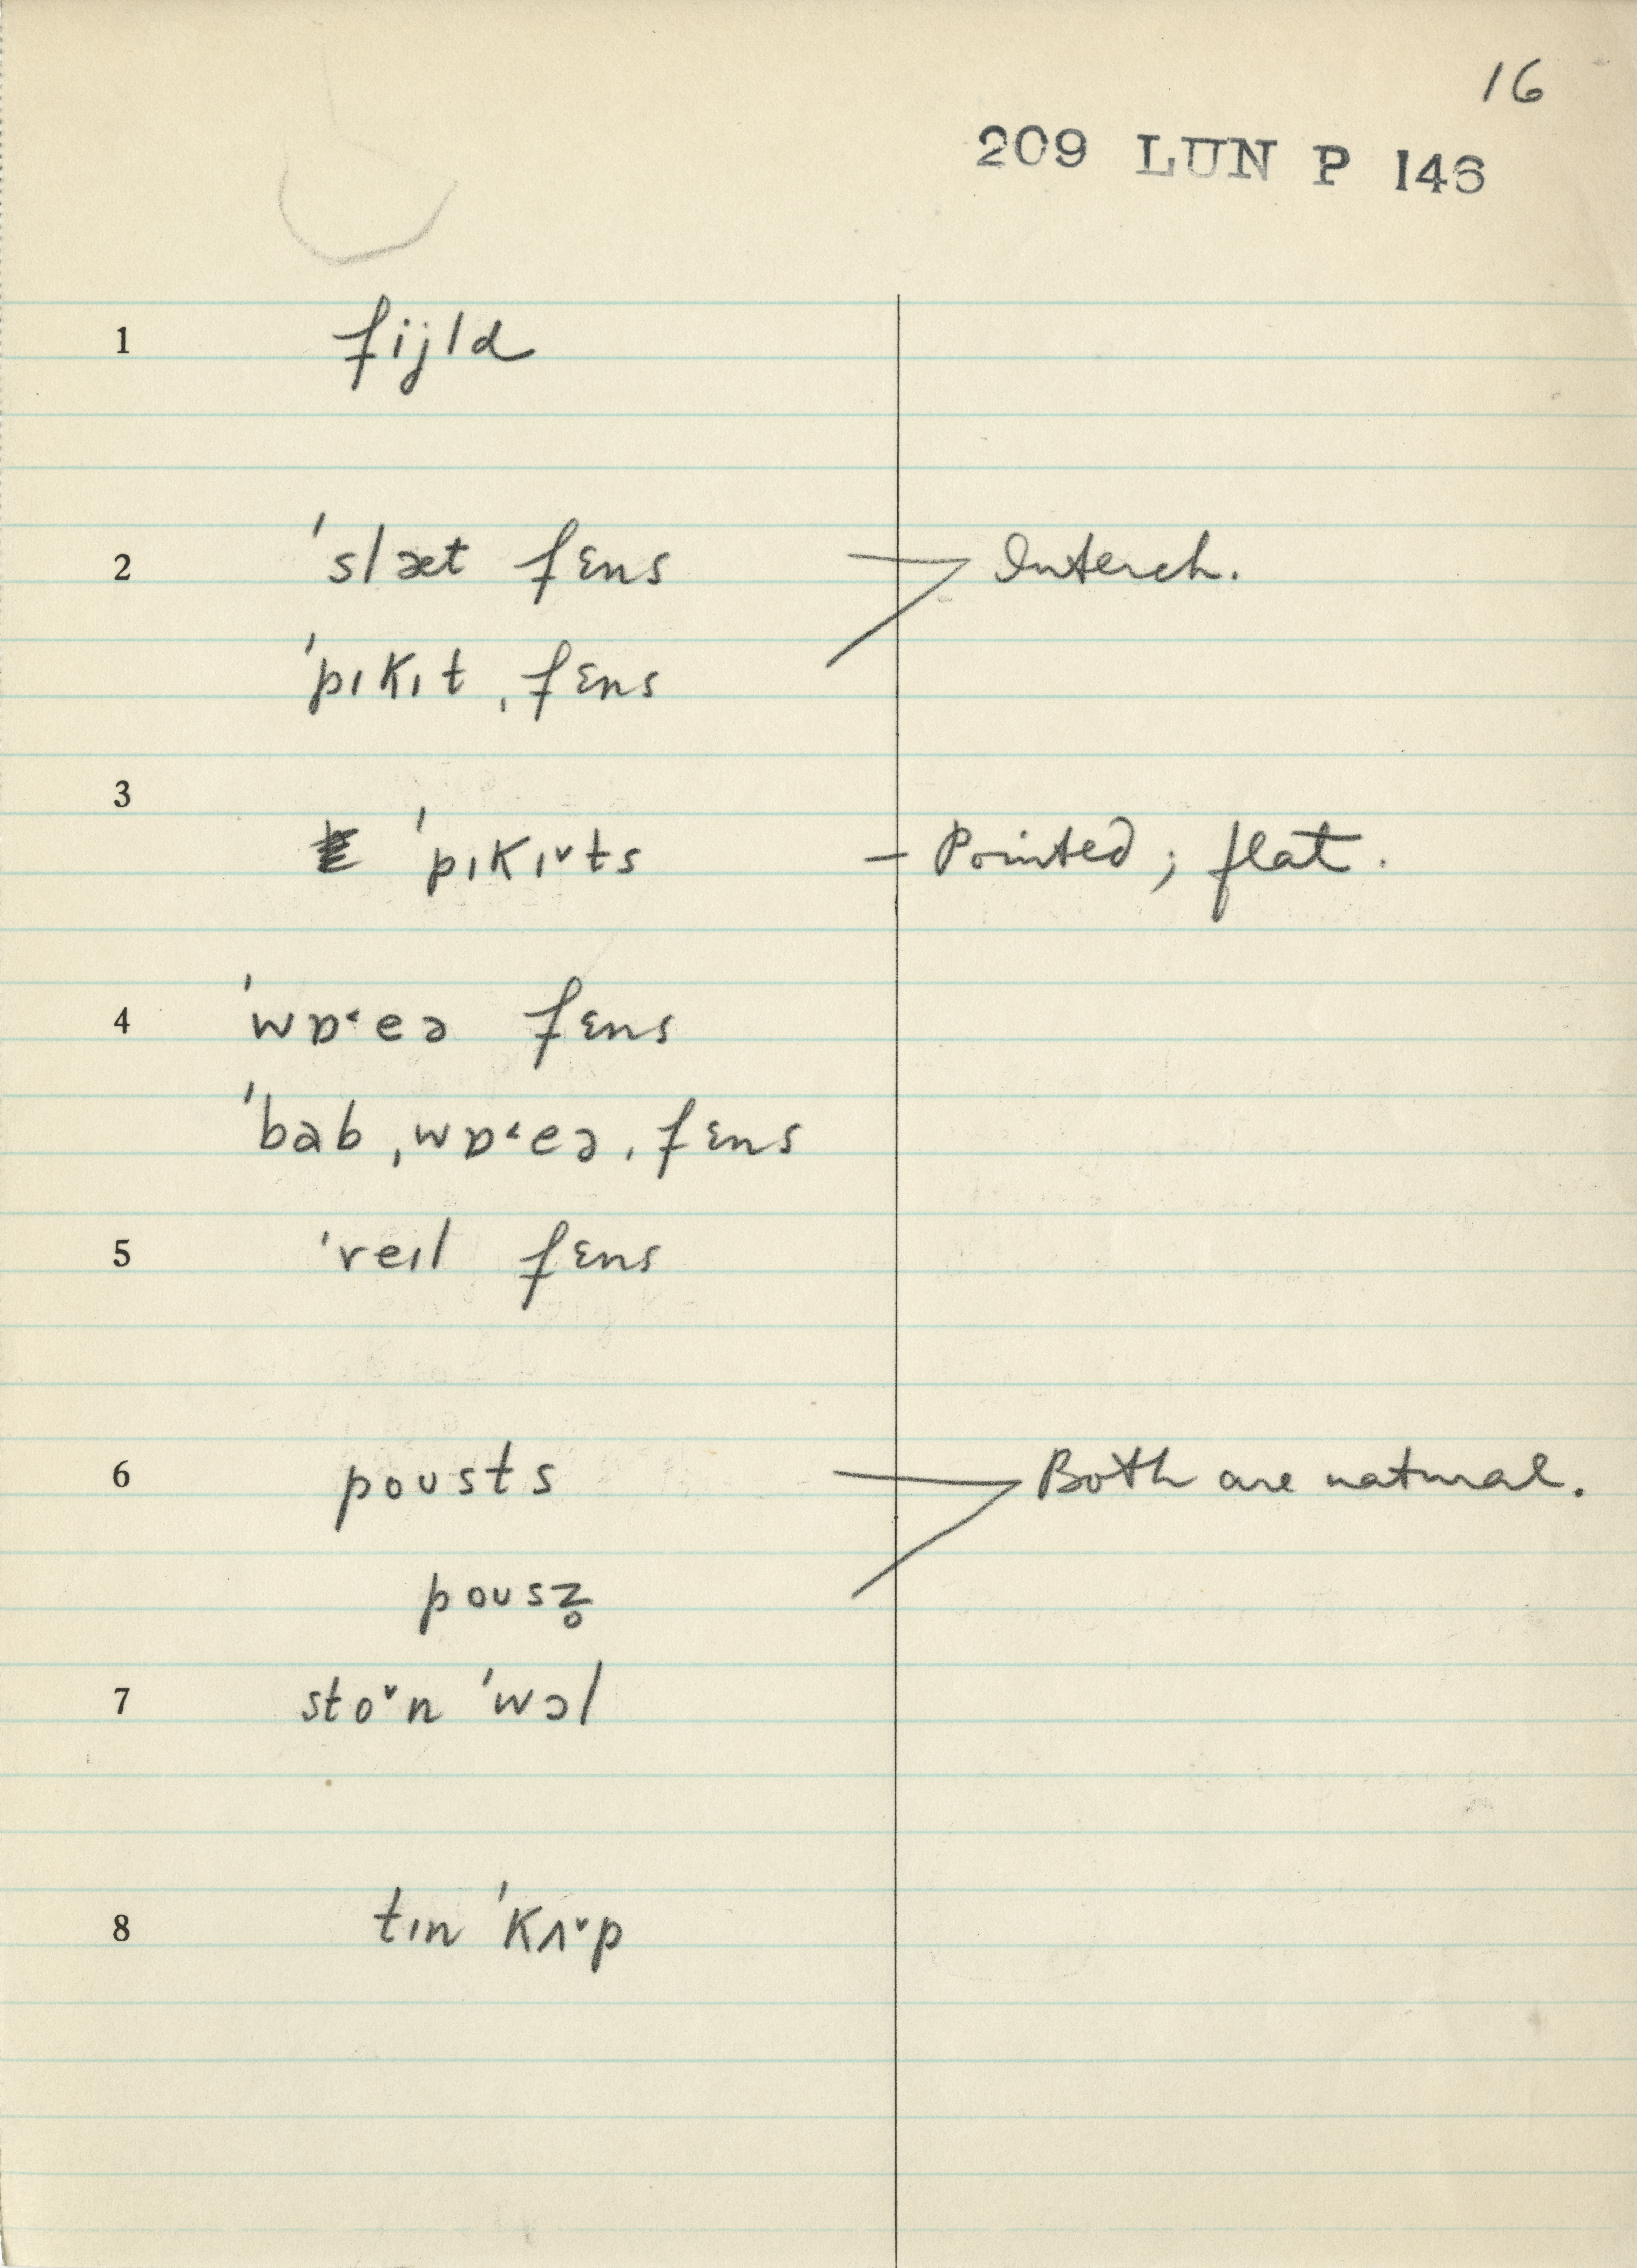 16
209 LUN P 146
1 fijld
2 ˈslæt fɛns Interch.
ˈpɪkɪt ˌfɛns
3 ˈpɪkɪ˅ts – Pointed; flat.
4 ˈwɒ˂eə fɛns
ˈbab ˌwɒ˂eə ˌfɛns
5 ˈreɪl fɛns
6 poʊsts Both are natural.
poʊsz̥
7 sto˅n ˈwɔl
8 tɪn ˈkʌ˅p